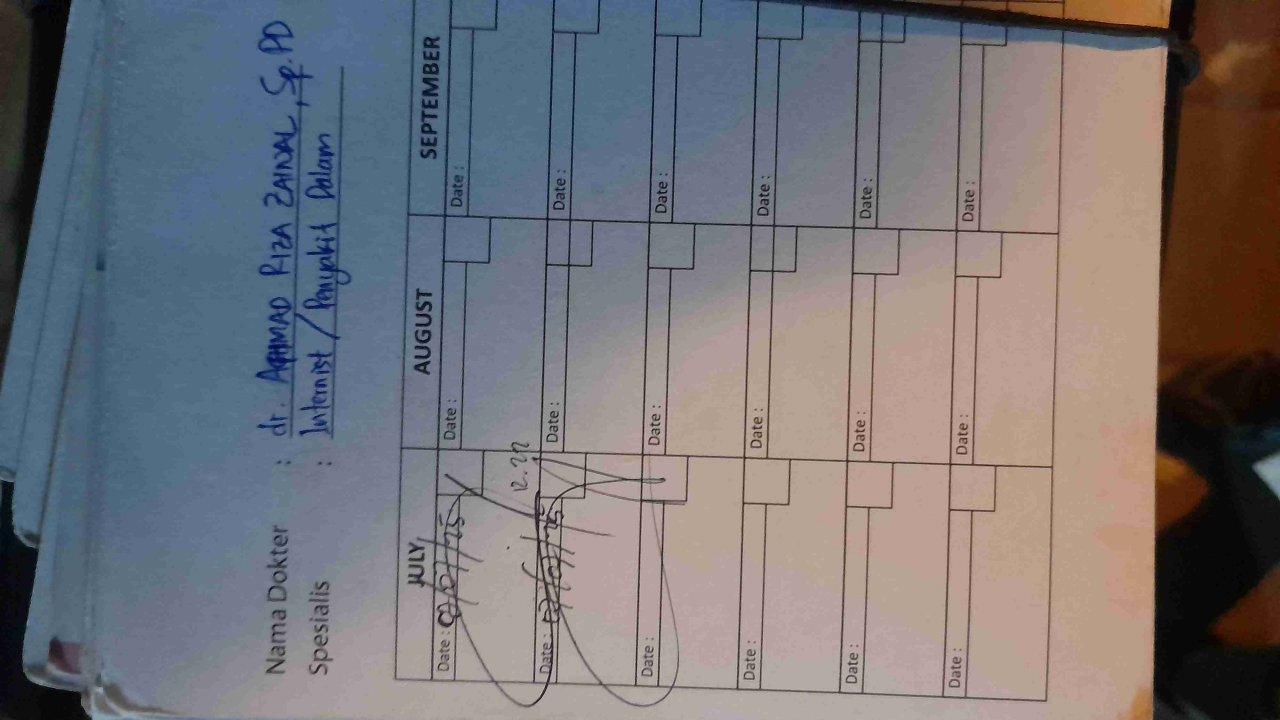 Nama Dokter : dr. AHMAD RIZA ZAINAL, Sp.PD
Spesialis : Internist / Penyakit Dalam
JULY AUGUST SEPTEMBER
Date : Date : Date :
12.22
Date : Date : Date :
Date : Date : Date :
Date : Date : Date :
Date : Date : Date :
Date : Date : Date :